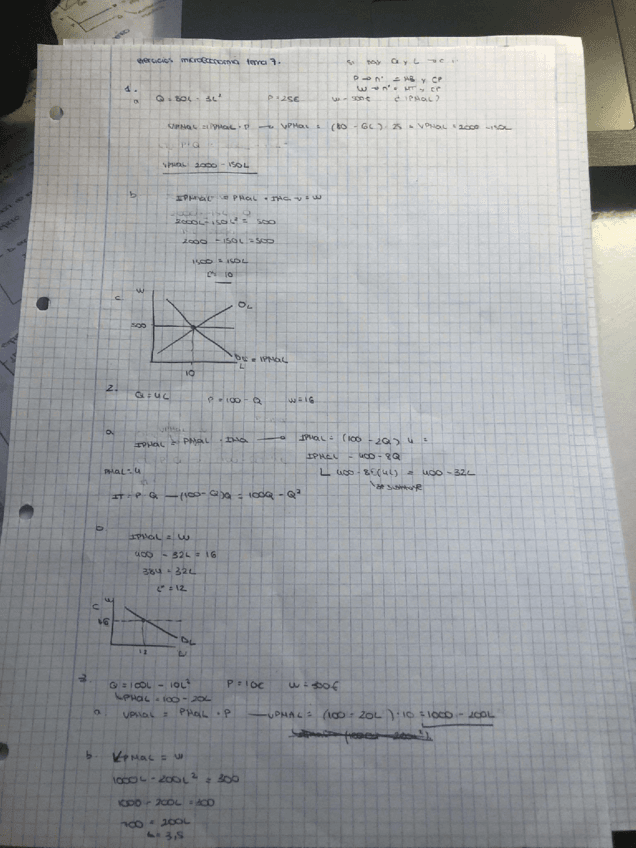 ejercicios microeconomía tema 7.
si hay Q y L → C
P → nº = MB y CP
W → nº = MT y CP
1.
a Q = 80L - 3L² P = 25€ w = 500€ ¿VPMAL?
VPMAL = PMAL · P → VPMAL = (80 - 6L) · 25 = VPMAL = 2000 - 150L
VPMAL 2000 - 150L
b IPMAL = PMAL · IMG = W
2000L - 150L² = 500
2000 - 150L = 500
1500 = 150L
L* = 10
c W
OL
500
DL = IPMAL
L
10
2. Q = 4L P = 100 - Q w = 16
a. IPMAL = PMAL · IMG → IPMAL = (100 - 2Q) 4 =
IPMAL = 400 - 8Q
PMAL = 4
400 - 8(4L) = 400 - 32L
IT = P · Q → (100 - Q)Q = 100Q - Q²
b
IPMAL = W
400 - 32L = 16
384 = 32L
L* = 12
c W
16
DL
12
3. Q = 100L - 10L² P = 10€ w = 300€
PMAL = 100 - 20L
a VPMAL = PMAL · P → VPMAL = (100 - 20L) · 10 = 1000 - 200L
b. VPMAL = W
1000L - 200L² = 300
1000 - 200L = 300
700 = 200L
L = 3,5